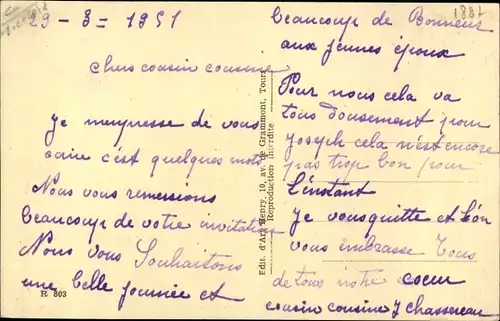 29 - 3 = 1951
chers cousin cousine
Je m'empresse de vous
ecrire c'est quelques mots
Nous vous remersions
beaucoup de votre invitation
Nous vous Souhaitons
une belle journée et
R 803
Edit. d'Art Henry, 10, av. de Grammont, Tours
Reproduction interdite
1887
beaucoup de Bonneur
aux jeunes époux
Pour nous cela va
tous dousement pour
Joseph cela n'est encore
pas trop bon pour
L'énstant
Je vous quitte et l'on
vous imbrasse Tous
de tous notre coeur
cousin cousine J chassereau